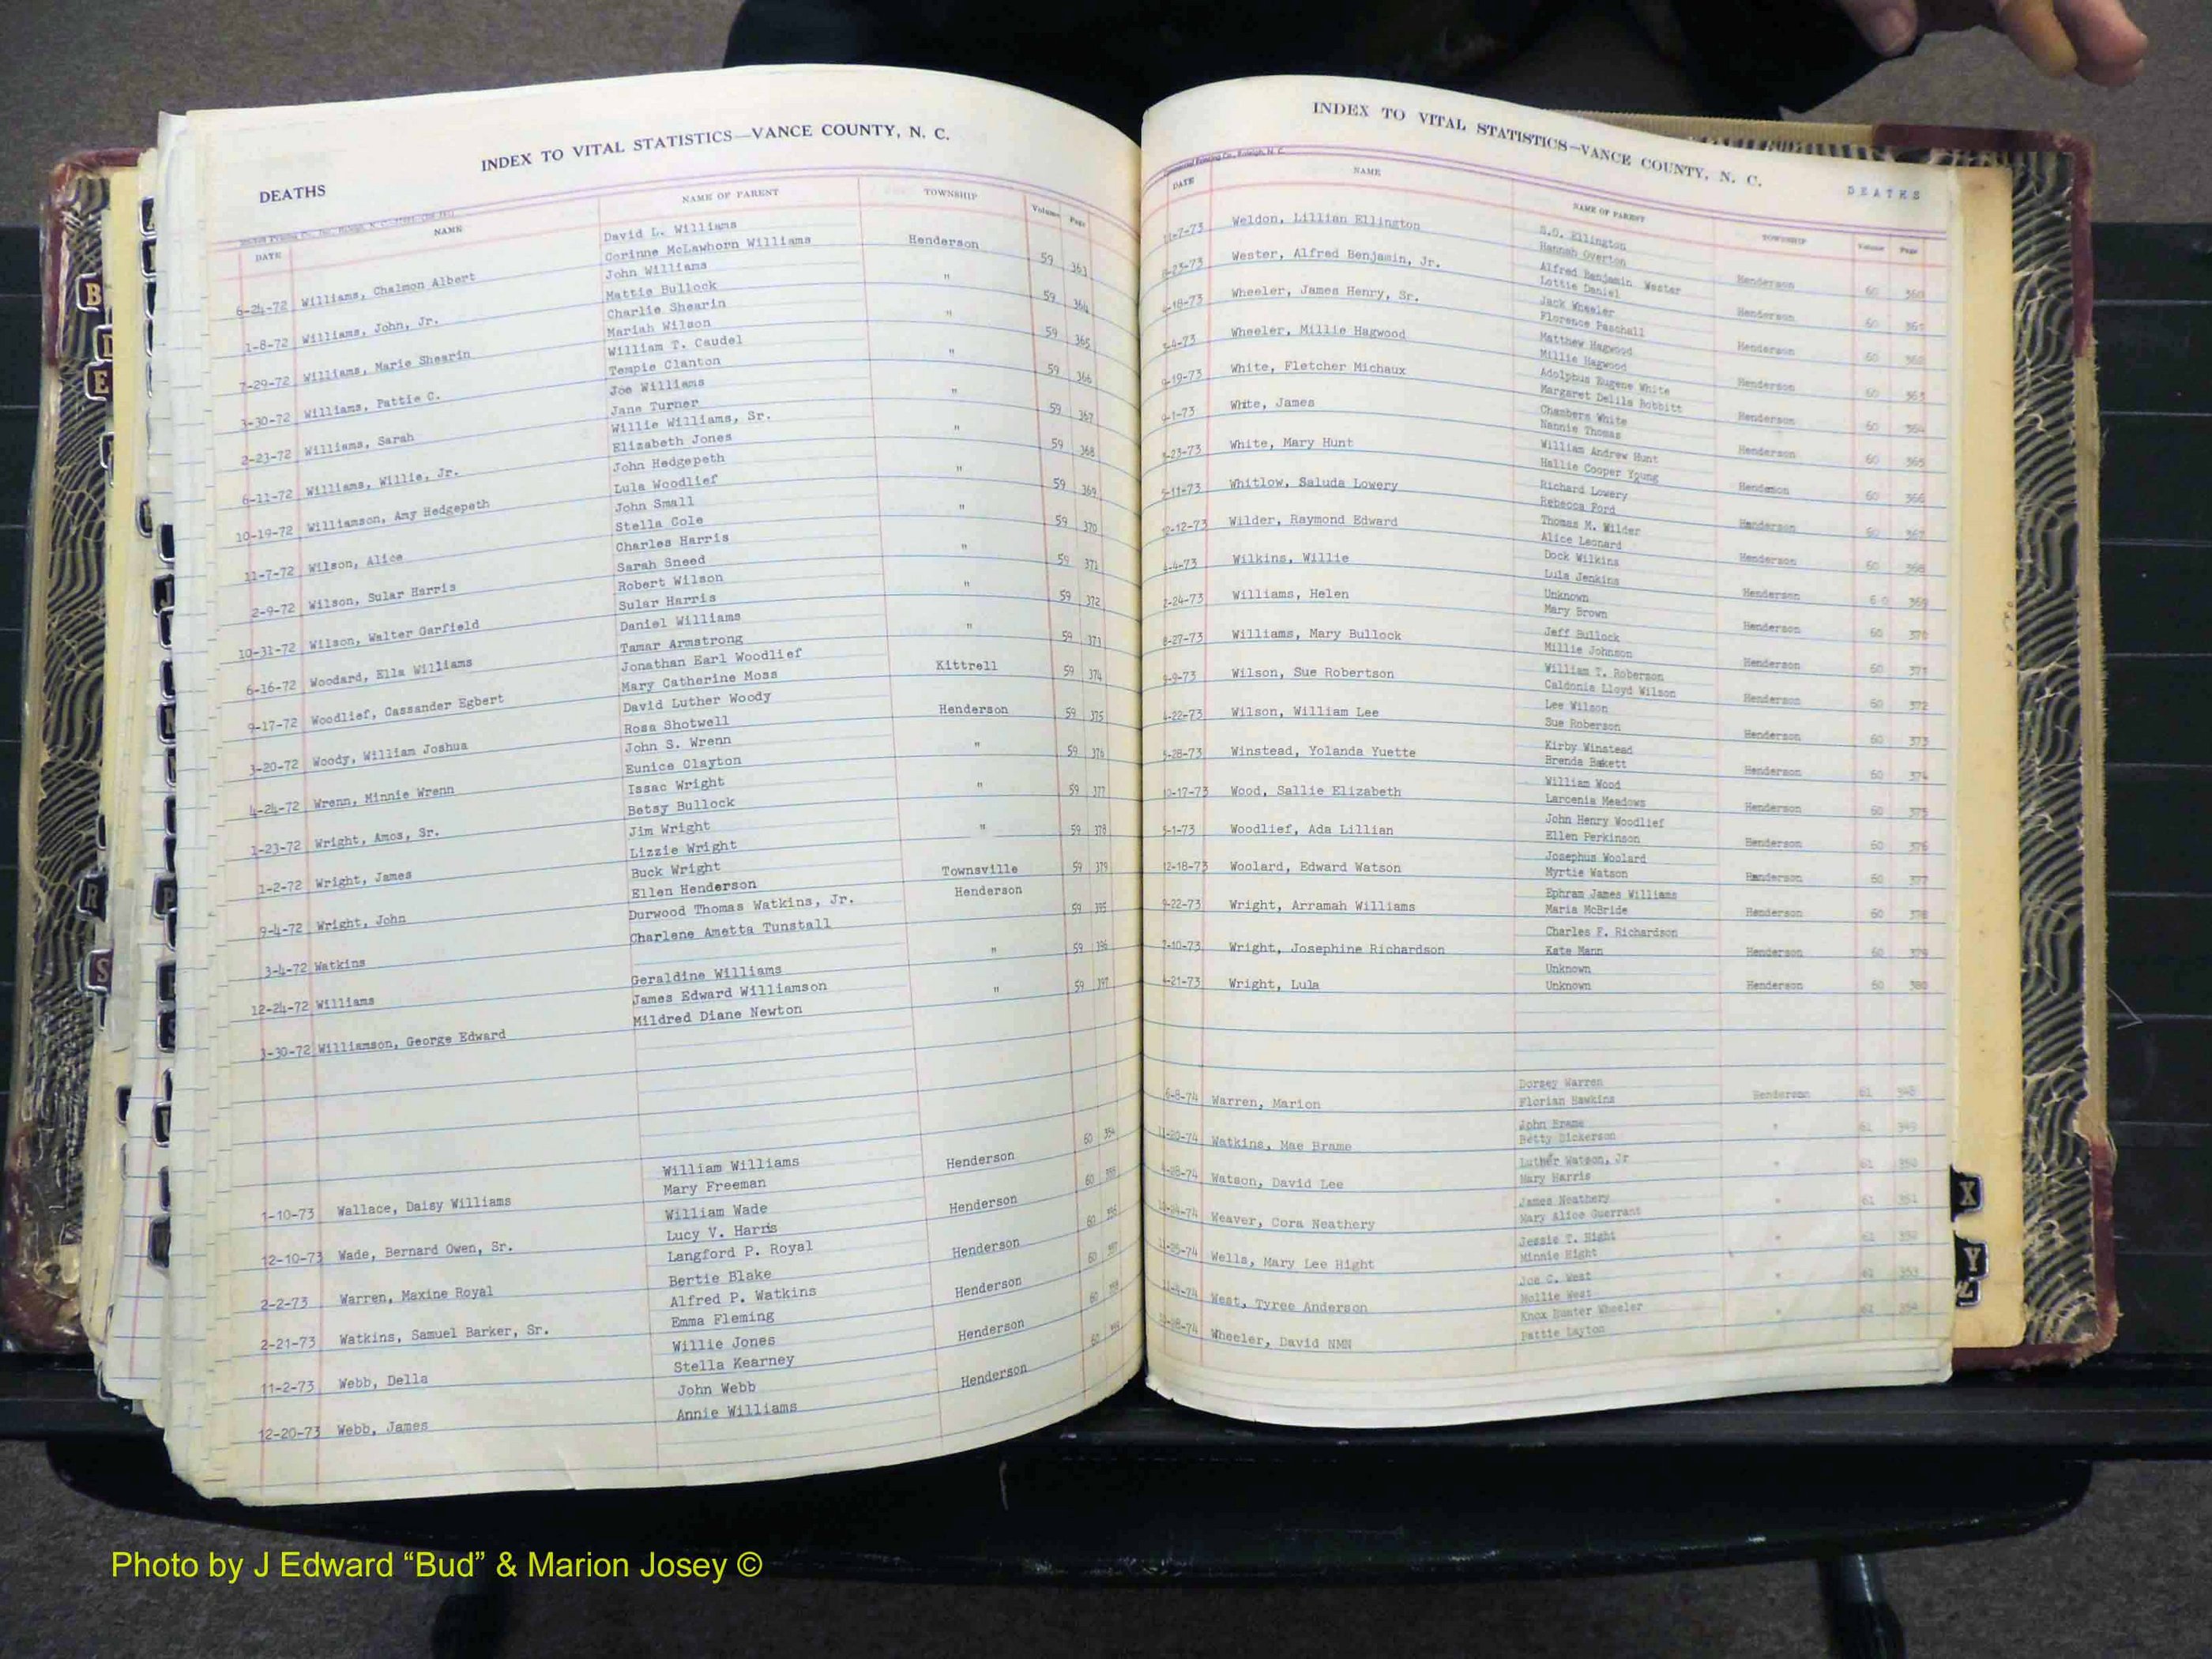 INDEX TO VITAL STATISTICS—VANCE COUNTY, N. C.
DEATHS
DATE NAME NAME OF PARENT TOWNSHIP Volume Page
David L. Williams
6-24-72 Williams, Chalmon Albert Corinne McLawhorn Williams Henderson 59 363
John Williams
1-8-72 Williams, John, Jr. Mattie Bullock " 59 364
Charlie Shearin
7-29-72 Williams, Marie Shearin Mariah Wilson " 59 365
William T. Caudel
3-30-72 Williams, Pattie C. Tempie Clanton " 59 366
Joe Williams
2-23-72 Williams, Sarah Jane Turner " 59 367
Willie Williams, Sr.
6-11-72 Williams, Willie, Jr. Elizabeth Jones " 59 368
John Hedgepeth
10-19-72 Williamson, Amy Hedgepeth Lula Woodlief " 59 369
John Small
11-7-72 Wilson, Alice Stella Cole " 59 370
Charles Harris
2-9-72 Wilson, Sular Harris Sarah Sneed " 59 371
Robert Wilson
10-31-72 Wilson, Walter Garfield Sular Harris " 59 372
Daniel Williams
6-16-72 Woodard, Ella Williams Tamar Armstrong " 59 373
Jonathan Earl Woodlief
9-17-72 Woodlief, Cassander Egbert Mary Catherine Moss Kittrell 59 374
David Luther Woody
3-20-72 Woody, William Joshua Rosa Shotwell Henderson 59 375
John S. Wrenn
4-24-72 Wrenn, Minnie Wrenn Eunice Clayton " 59 376
Issac Wright
1-23-72 Wright, Amos, Sr. Betsy Bullock " 59 377
Jim Wright
1-2-72 Wright, James Lizzie Wright " 59 378
Buck Wright
9-4-72 Wright, John Ellen Henderson Townsville 59 379
Durwood Thomas Watkins, Jr.
3-4-72 Watkins Charlene Ametta Tunstall Henderson 59 395
12-24-72 Williams Geraldine Williams " 59 396
James Edward Williamson
3-30-72 Williamson, George Edward Mildred Diane Newton " 59 397
William Williams
1-10-73 Wallace, Daisy Williams Mary Freeman Henderson 60 354
William Wade
12-10-73 Wade, Bernard Owen, Sr. Lucy V. Harris Henderson 60 355
Langford P. Royal
2-2-73 Warren, Maxine Royal Bertie Blake Henderson 60 356
Alfred P. Watkins
2-21-73 Watkins, Samuel Barker, Sr. Emma Fleming Henderson 60 357
Willie Jones
11-2-73 Webb, Della Stella Kearney Henderson 60 358
John Webb
12-20-73 Webb, James Annie Williams Henderson 60 359
INDEX TO VITAL STATISTICS—VANCE COUNTY, N. C.
DEATHS
DATE NAME NAME OF PARENT TOWNSHIP Volume Page
S.O. Ellington
Weldon, Lillian Ellington Hannah Overton Henderson 60 360
Alfred Benjamin Wester
Wester, Alfred Benjamin, Jr. Lottie Daniel Henderson 60 361
Jack Wheeler
Wheeler, James Henry, Sr. Florence Paschall Henderson 60 362
Matthew Hagwood
Wheeler, Millie Hagwood Millie Hagwood Henderson 60 363
Adolphus Eugene White
White, Fletcher Michaux Margaret Delila Bobbitt Henderson 60 364
Chambers White
White, James Nannie Thomas Henderson 60 365
William Andrew Hunt
White, Mary Hunt Hallie Cooper Young Henderson 60 366
Richard Lowery
Whitlow, Saluda Lowery Rebecca Ford Henderson 60 367
Thomas M. Wilder
Wilder, Raymond Edward Alice Leonard Henderson 60 368
Dock Wilkins
Wilkins, Willie Lula Jenkins Henderson 60 369
Unknown
Williams, Helen Mary Brown Henderson 60 370
Jeff Bullock
Williams, Mary Bullock Millie Johnson Henderson 60 371
William T. Roberson
Wilson, Sue Robertson Caldonia Lloyd Wilson Henderson 60 372
Lee Wilson
Wilson, William Lee Sue Roberson Henderson 60 373
Kirby Winstead
Winstead, Yolanda Yuette Brenda Baskett Henderson 60 374
William Wood
10-17-73 Wood, Sallie Elizabeth Larcenia Meadows Henderson 60 375
John Henry Woodlief
5-1-73 Woodlief, Ada Lillian Ellen Perkinson Henderson 60 376
Josephus Woolard
12-18-73 Woolard, Edward Watson Myrtie Watson Henderson 60 377
Ephram James Williams
Wright, Arramah Williams Maria McBride Henderson 60 378
Charles F. Richardson
Wright, Josephine Richardson Kate Mann Henderson 60 379
Unknown
Wright, Lula Unknown Henderson 60 380
Dorsey Warren
6-8-74 Warren, Marion Florian Hawkins Henderson 61 348
John Brame
11-20-74 Watkins, Mae Brame Betty Dickerson " 61 349
Luther Watson, Jr
Watson, David Lee Mary Harris " 61 350
James Neathery
Weaver, Cora Neathery Mary Alice Guerrant " 61 351
Jessie T. Hight
Wells, Mary Lee Hight Minnie Hight " 61 352
Joe C. West
West, Tyree Anderson Mollie West " 61 353
Knox Hunter Wheeler
Wheeler, David NMN Pattie Layton " 61 354
B
D
E
R
S
X
Y
Z
Photo by J Edward “Bud” & Marion Josey ©